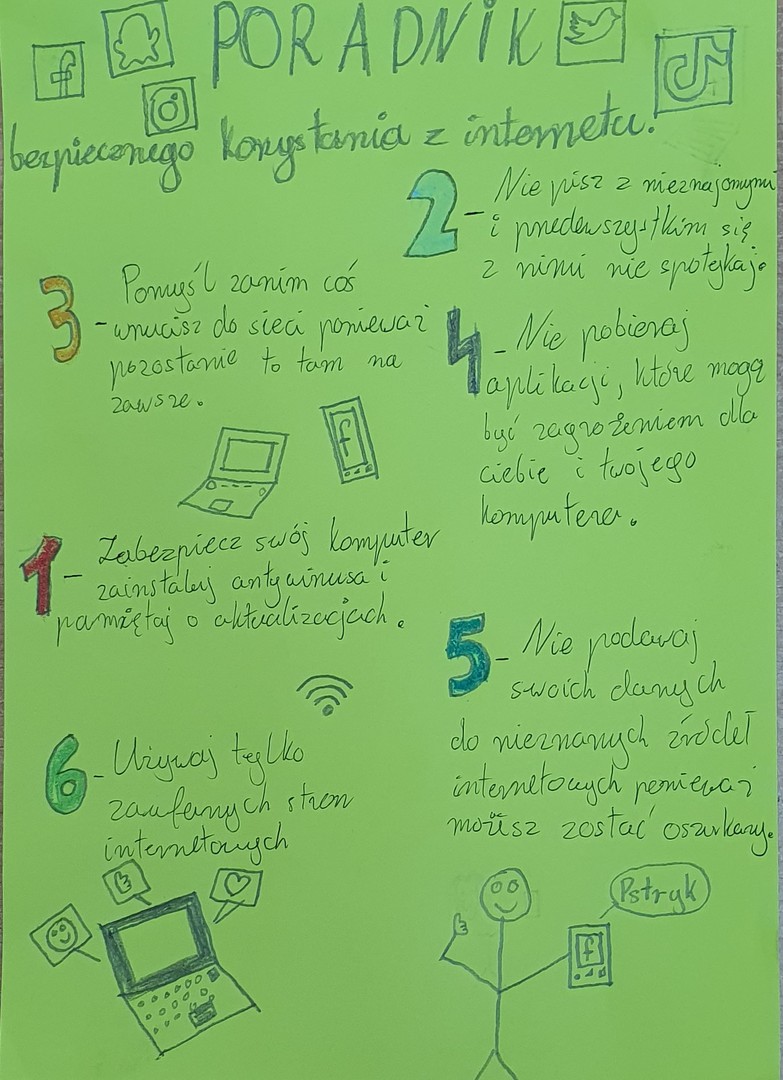 PORADNIK
bezpiecznego korzystania z internetu.
2 - Nie pisz z nieznajomymi
i przedewszystkim się
z nimi nie spotykaj.
3 - Pomyśl zanim coś
wrzucisz do sieci ponieważ
pozostanie to tam na
zawsze.
4 - Nie pobieraj
aplikacji, które mogą
być zagrożeniem dla
ciebie i twojego
komputera.
1 - Zabezpiecz swój komputer
zainstaluj antywirusa i
pamiętaj o aktualizacjach.
5 - Nie podawaj
swoich danych
do nieznanych źródeł
internetowych ponieważ
możesz zostać oszukany.
6 - Używaj tylko
zaufanych stron
internetowych
Pstryk